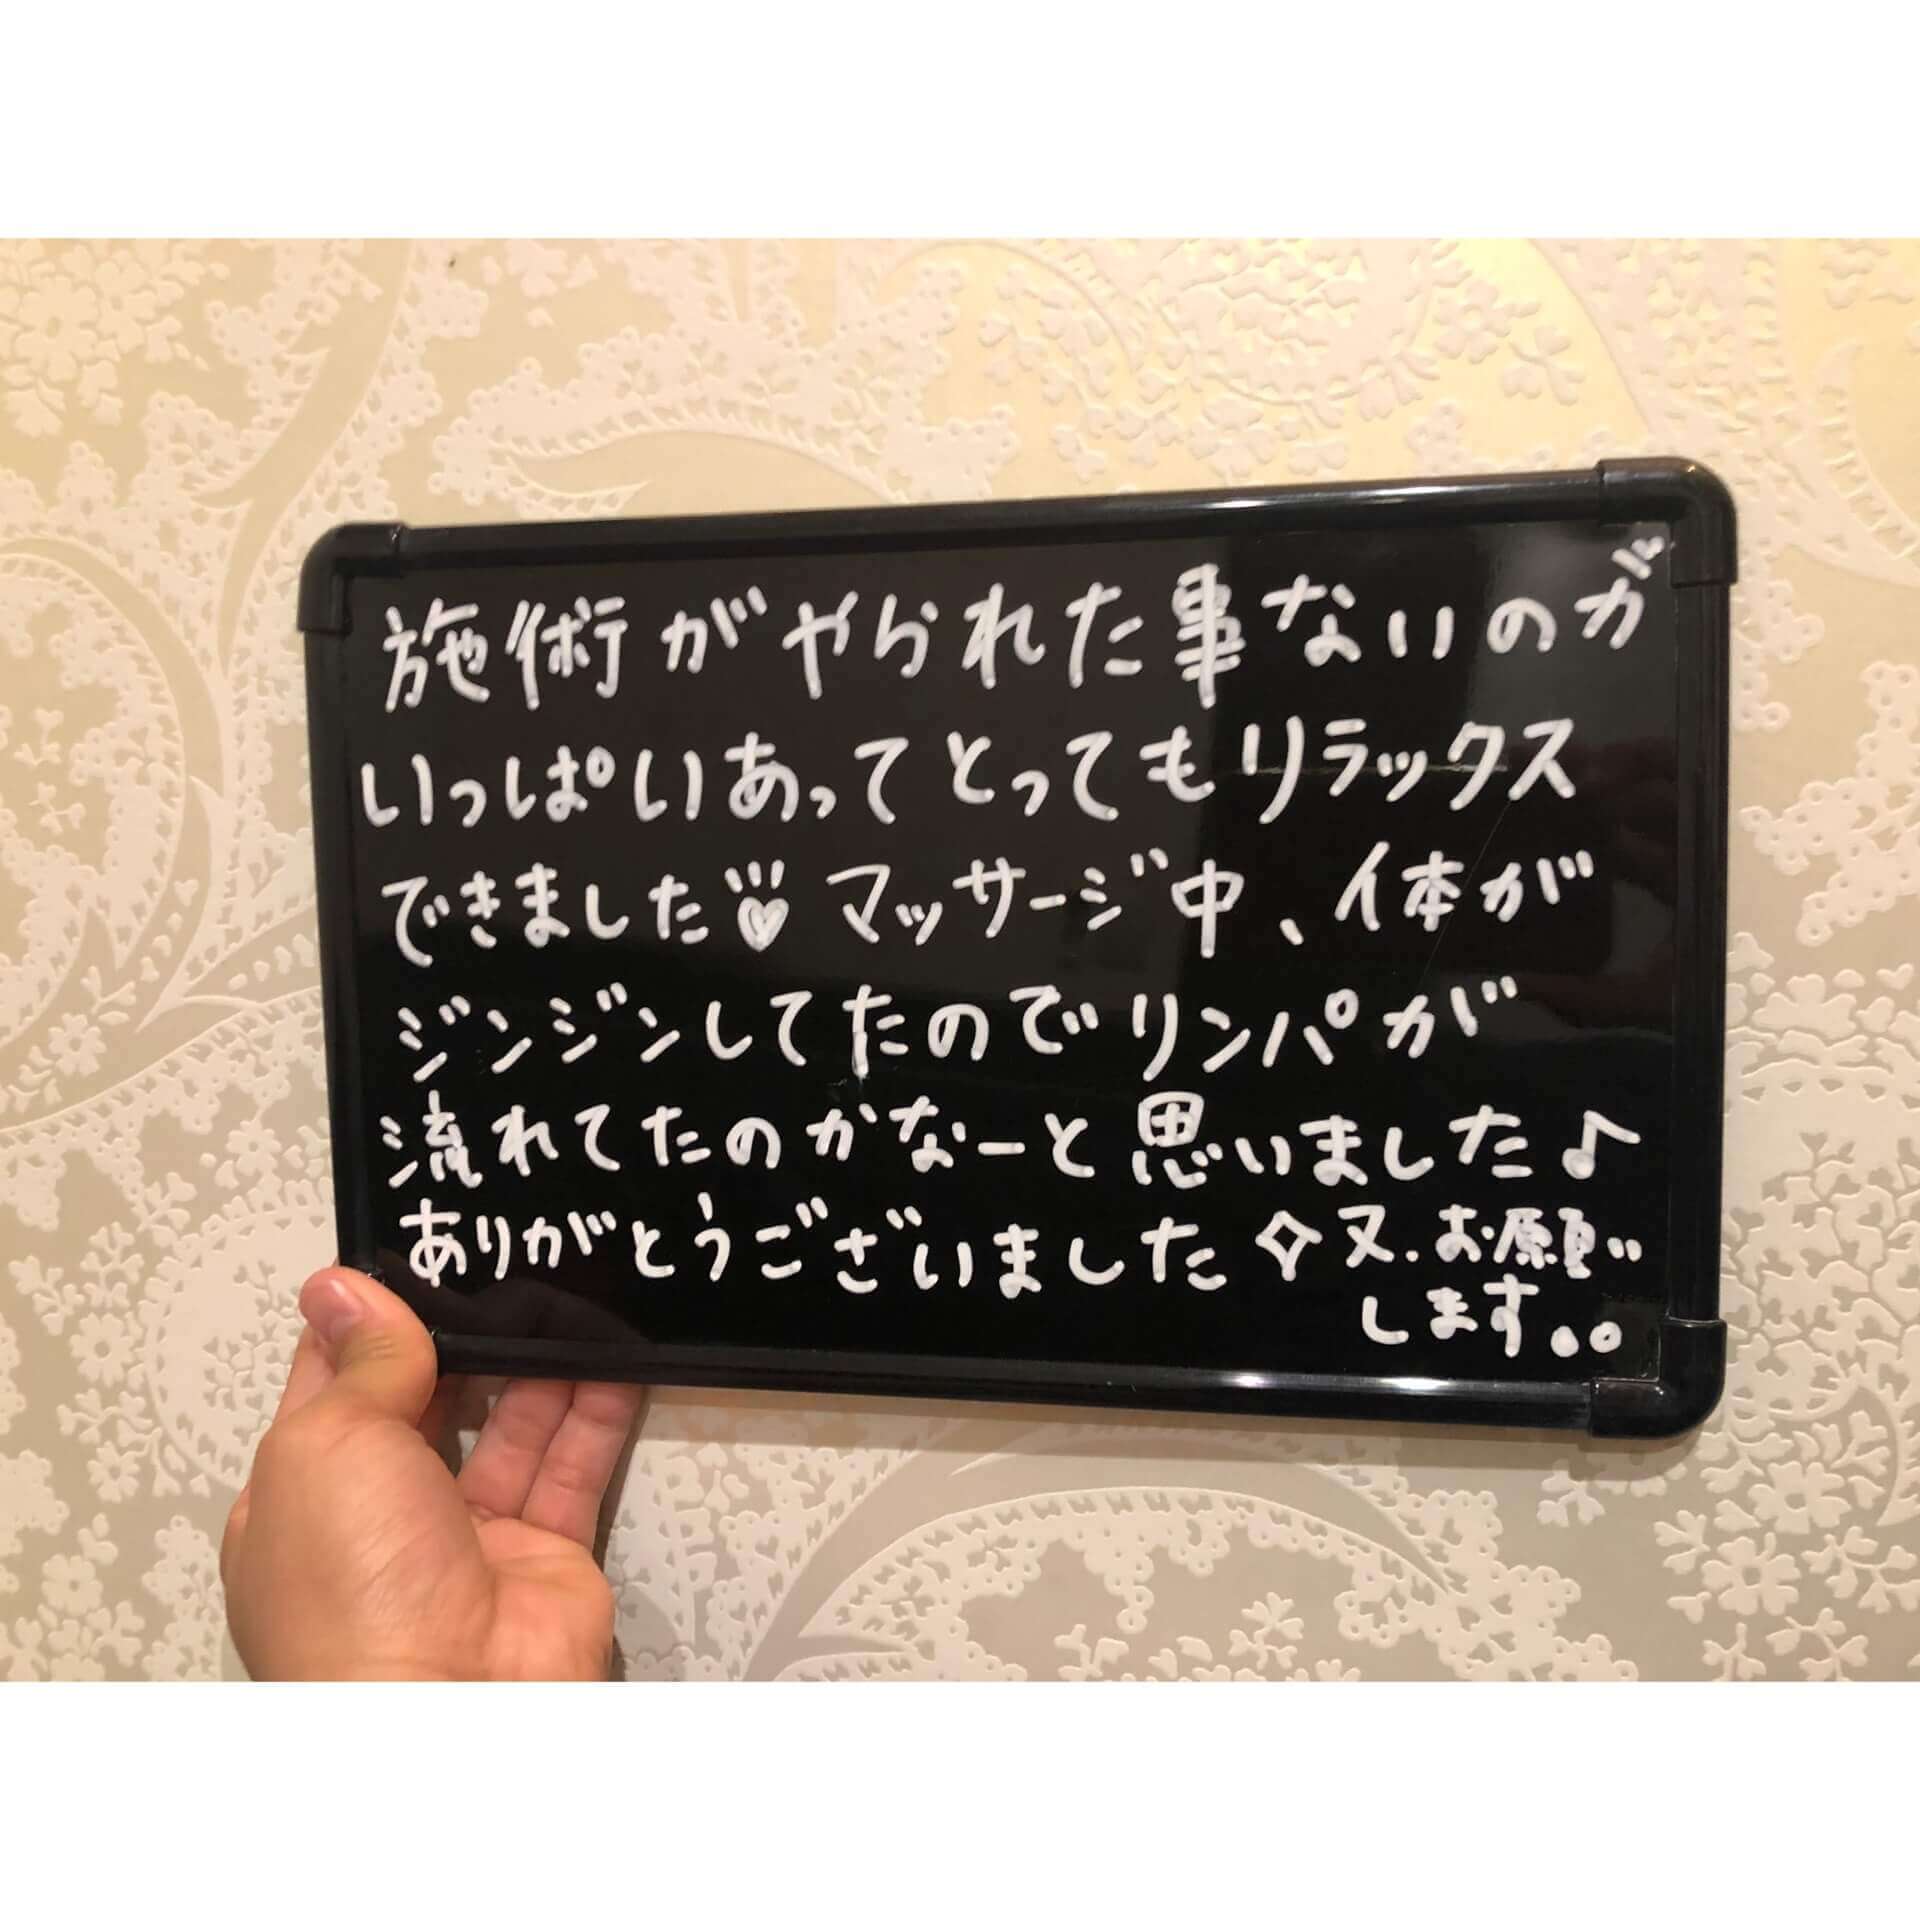 施術がやられた事ないのが
いっぱいあってとってもリラックス
できました♡ マッサージ中、体が
ジンジンしてたのでリンパが
流れてたのかなーと思いました♪
ありがとうございました✧又、お願い
します。。